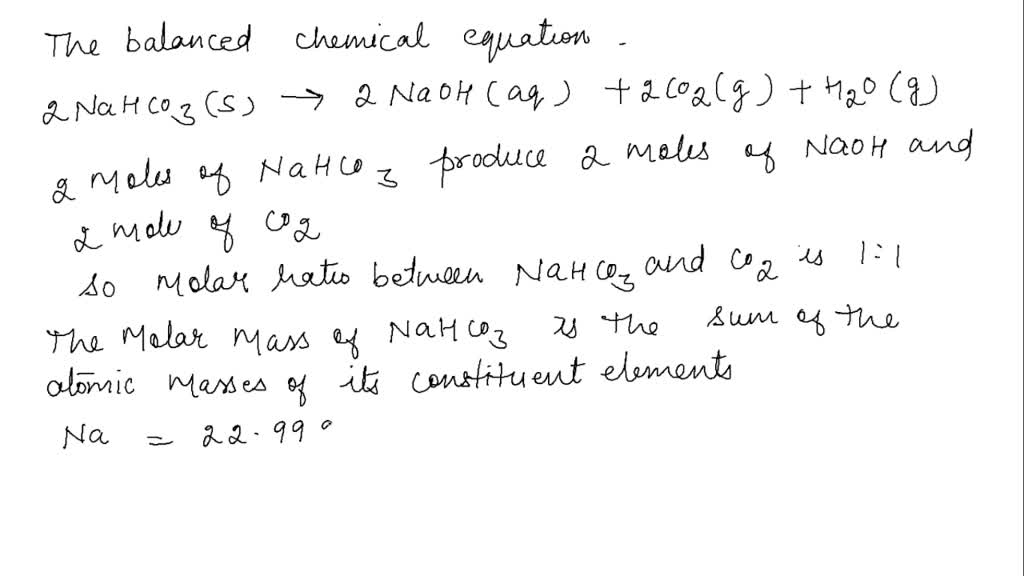 The balanced chemical equation.
2NaHCO3(s) → 2NaOH(aq) + 2CO2(g) + H2O(g)
2 moles of NaHCO3 produce 2 moles of NaOH and
2 mole of CO2
so molar ratio between NaHCO3 and CO2 is 1:1
The Molar Mass of NaHCO3 is the sum of the
atomic masses of its constituent elements
Na = 22.99